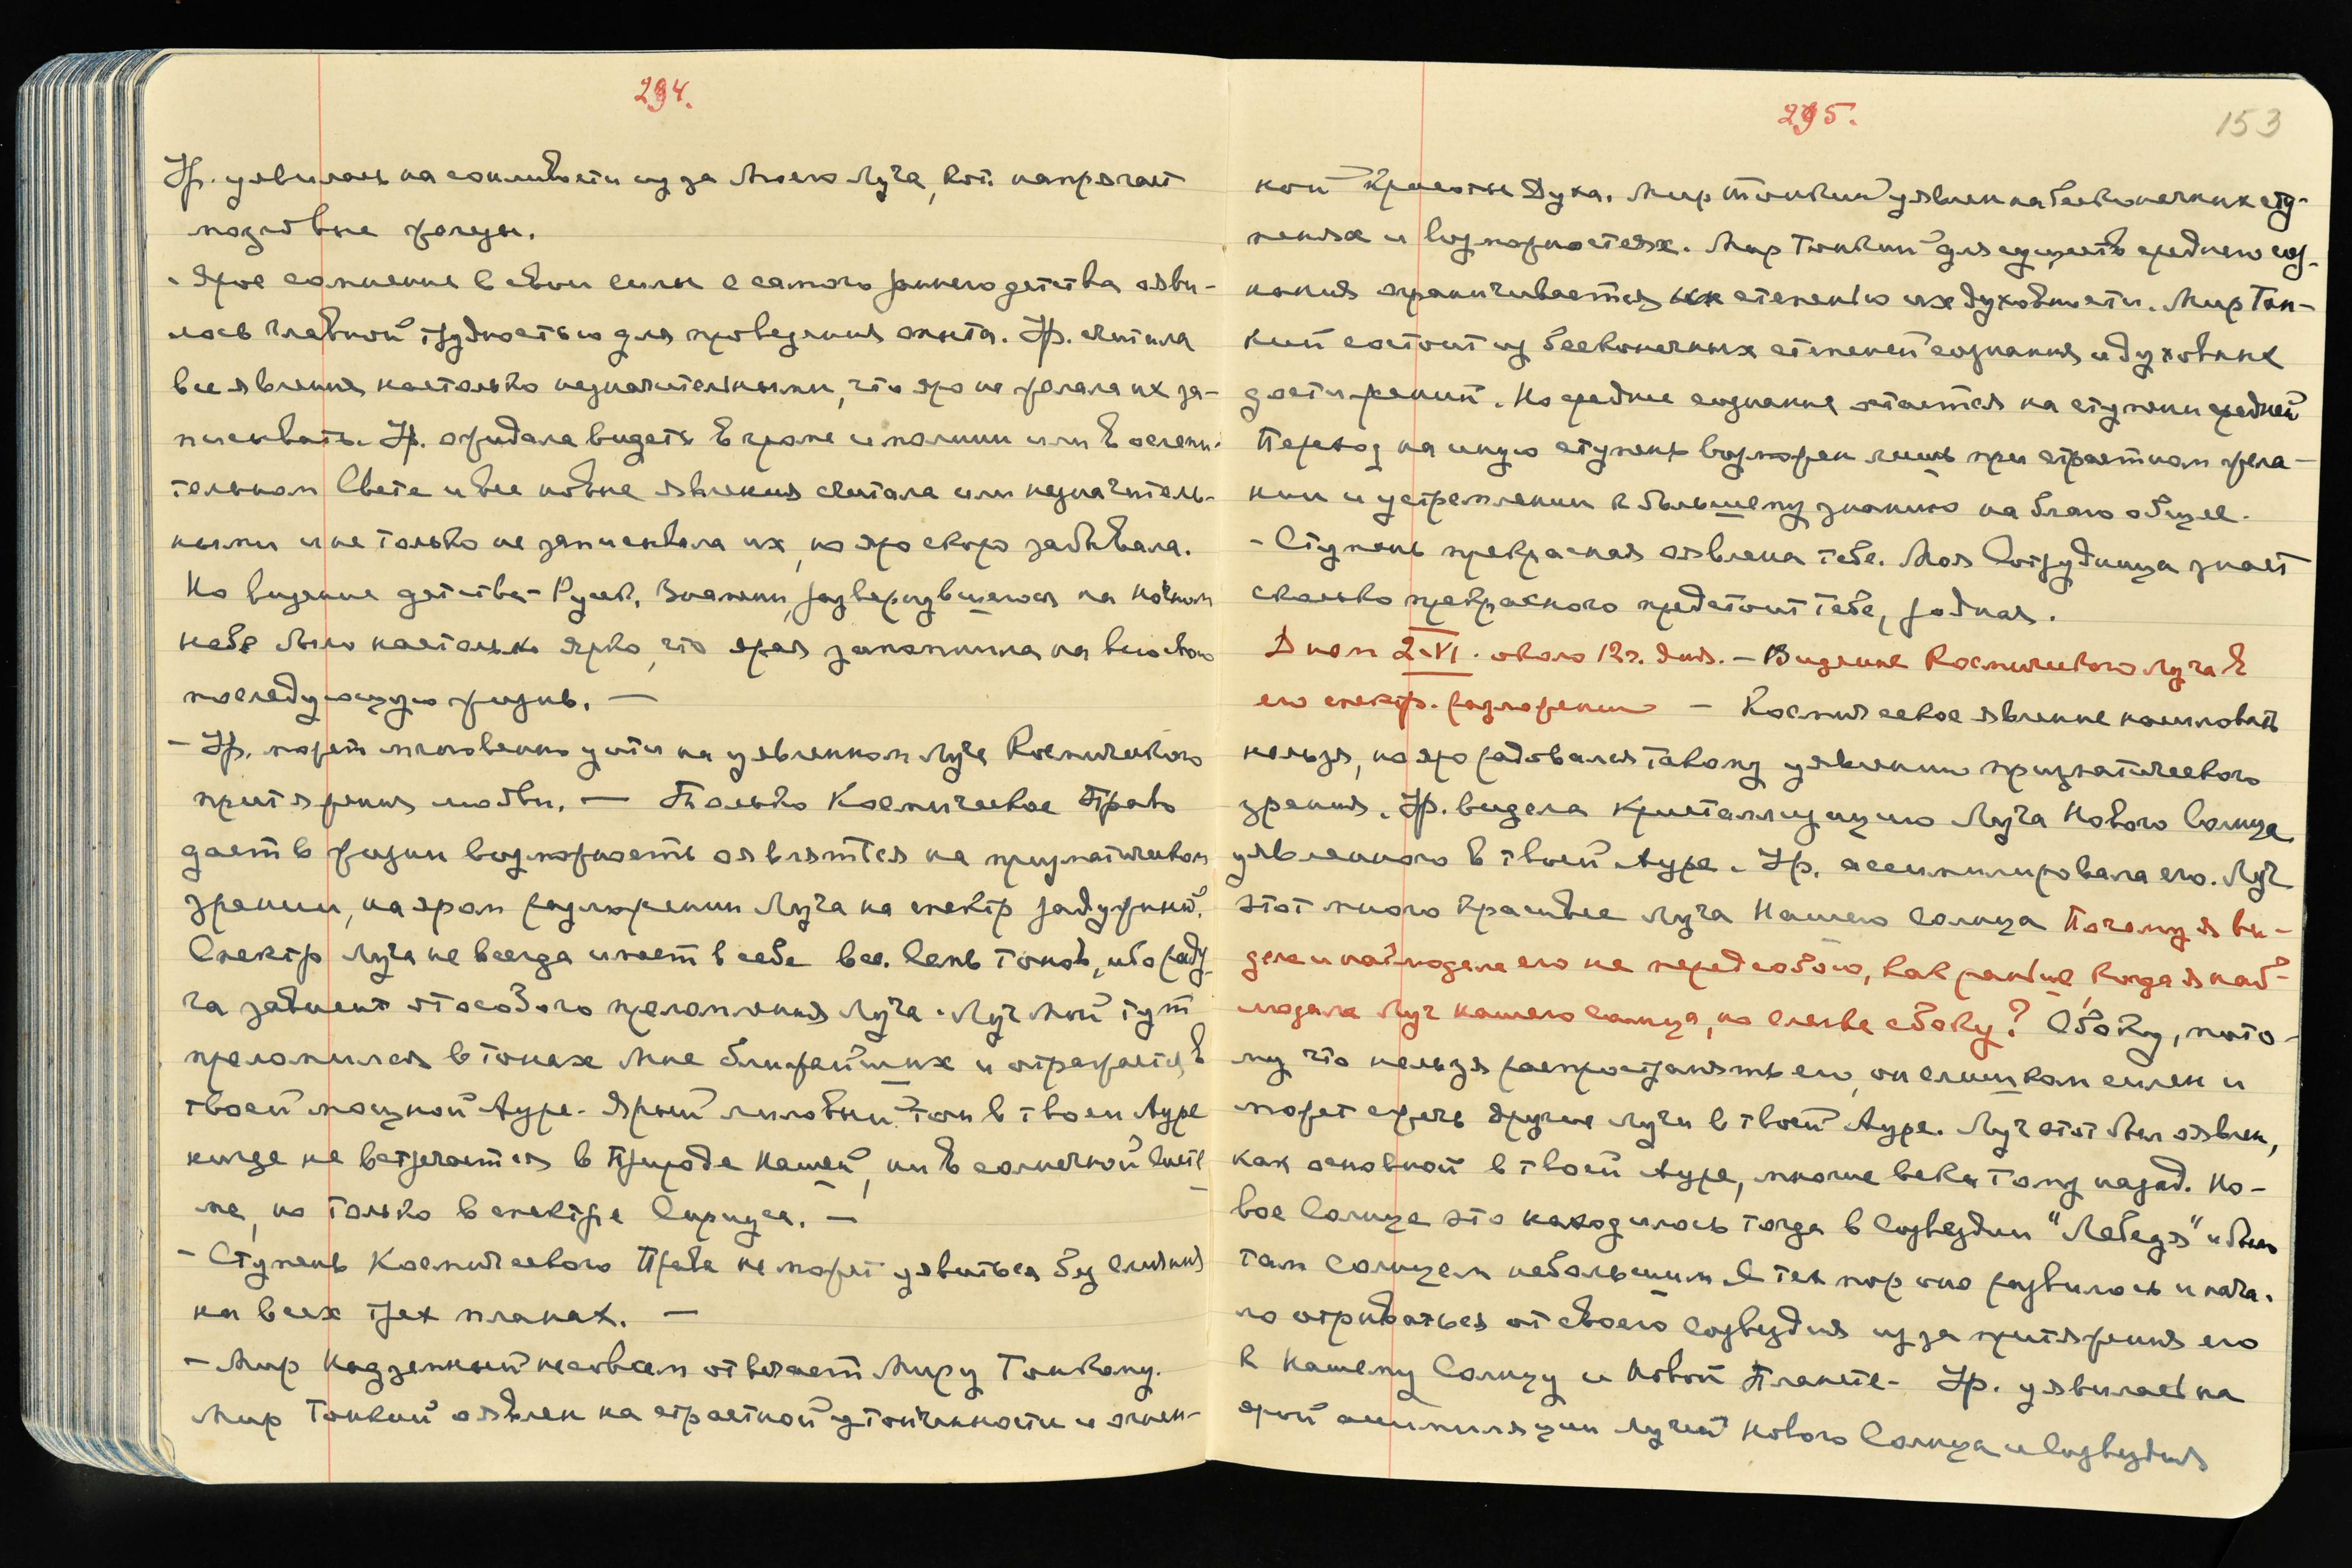 294.
Ур. уявилась на сонливости из за Моего Луча, кот. напрягает
мозговые центры.
- Ярое сомнение в свои силы с самого раннего детства яви-
лось главной трудностью для проведения опыта. Ур. считала
все явления настолько незначительными, что яро не желала их за-
писывать. Ур. ожидала видеть в громе и молнии или в ослепи-
тельном Свете и все новые явления считала или незначитель-
ными и не только не записывала их, но яро скоро забывала.
Но видение детства - Русск. Знамени, развернувшегося на ночном
небе было настолько ярко, что ярая запомнила на всю свою
последующую жизнь. —
- Ур. может мгновенно уйти на уявленном Луче Космического
притяжения любви. — Только Космическое Право
дает в жизни возможность оявляться на призматическом
зрении, на яром разложении Луча на спектр радужный.
Спектр Луча не всегда имеет в себе все Семь тонов, ибо раду-
га зависит от особого преломления Луча. Луч мой тут
преломился в тонах Мне ближайших и отражается в
твоей мощной Ауре. Ярый лиловый тон в твоей Ауре
нигде не встречается в Природе Нашей, ни в солнечной Систе-
ме, но только в спектре Сириуса. —
- Ступень Космического Права не может уявиться без слияния
на всех трех планах. —
- Мир Надземный не совсем отвечает Миру Тонкому.
Мир Тонкий оявлен на страстной утонченности и огнен-
295.
153
ной Красоты Духа. Мир Тонкий уявлен на бесконечных сту-
пенях и возможностях. Мир Тонкий для существ среднего соз-
нания ограничивается степенью их духовности. Мир Тон-
кий состоит из бесконечных степеней сознания и духовных
достижений. Но средние сознания остаются на ступени средней
Переход на иную ступень возможен лишь при страстном жела-
нии и устремлении к большему знанию на благо общее.
- Ступень прекрасная оявлена тебе. Моя Сотрудница знает
сколько прекрасного предстоит Тебе, родная.
Днем 2-VI. около 12 ч. дня. - Видение Космического Луча в
его спектр. разложении — Космическое явление насиловать
нельзя, но яро радовался такому уявлению призматического
зрения. Ур. видела кристаллизацию Луча Нового Солнца
уявленного в твоей Ауре. Ур. ассимилировала его. Луч
этот много красивее луча Нашего Солнца Почему я ви-
дела и наблюдала его не перед собою, как раньше, когда я наб-
людала Луч нашего Солнца, но слегка сбоку? Сбоку, пото-
му что нельзя распространять его, он слишком силен и
может сжечь другие лучи в твоей Ауре. Луч этот был оявлен,
как основной в твоей Ауре, многие века тому назад. Но-
вое Солнце это находилось тогда в Созвездии "Лебедя" и было
там Солнцем небольшим. С тех пор оно развилось и нача-
ло отрываться от своего созвездия из за притяжения его
к Нашему Солнцу и Новой Планете - Ур. уявилась на
ярой ассимиляции лучей Нового Солнца и Созвездия